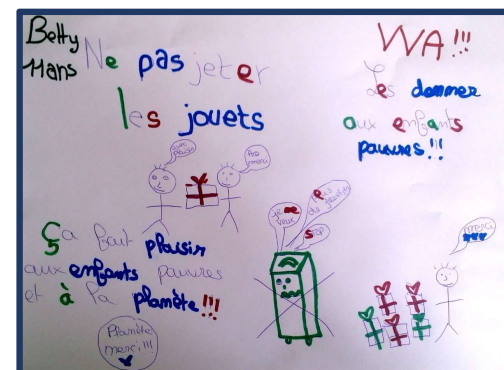 Betty
Mans
Ne pas jeter
les jouets
VVA!!!
Les donner
aux enfants
pauvres!!
avec
plaisir
merci
je ne
veux
plus
de jouets
stop
Ça fait plaisir
aux enfants pauvres
et à la planète!!!
Planète
merci!!!
merci